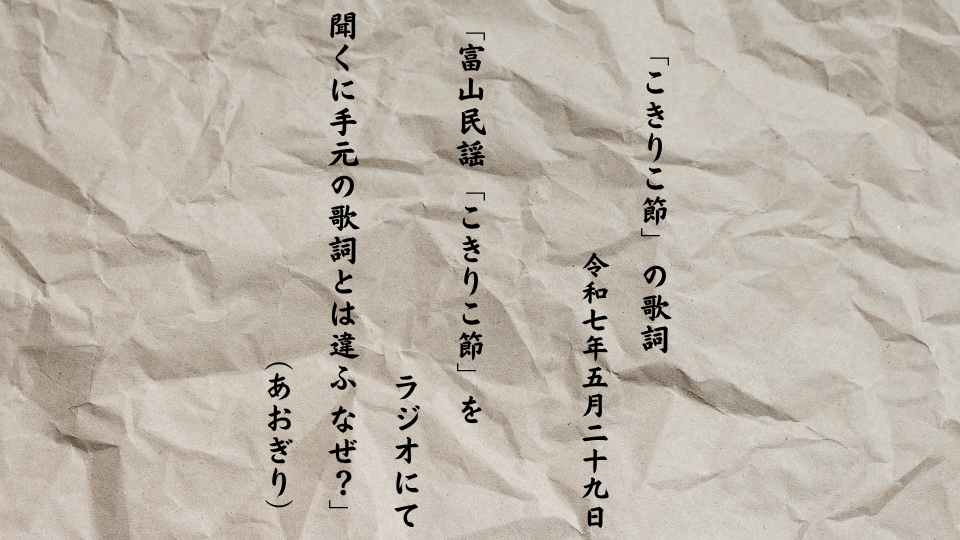 「こきりこ節」の歌詞
令和七年五月二十九日
「富山民謡 「こきりこ節」を
ラジオにて
聞くに手元の歌詞とは違ふ なぜ？」
（あおぎり）